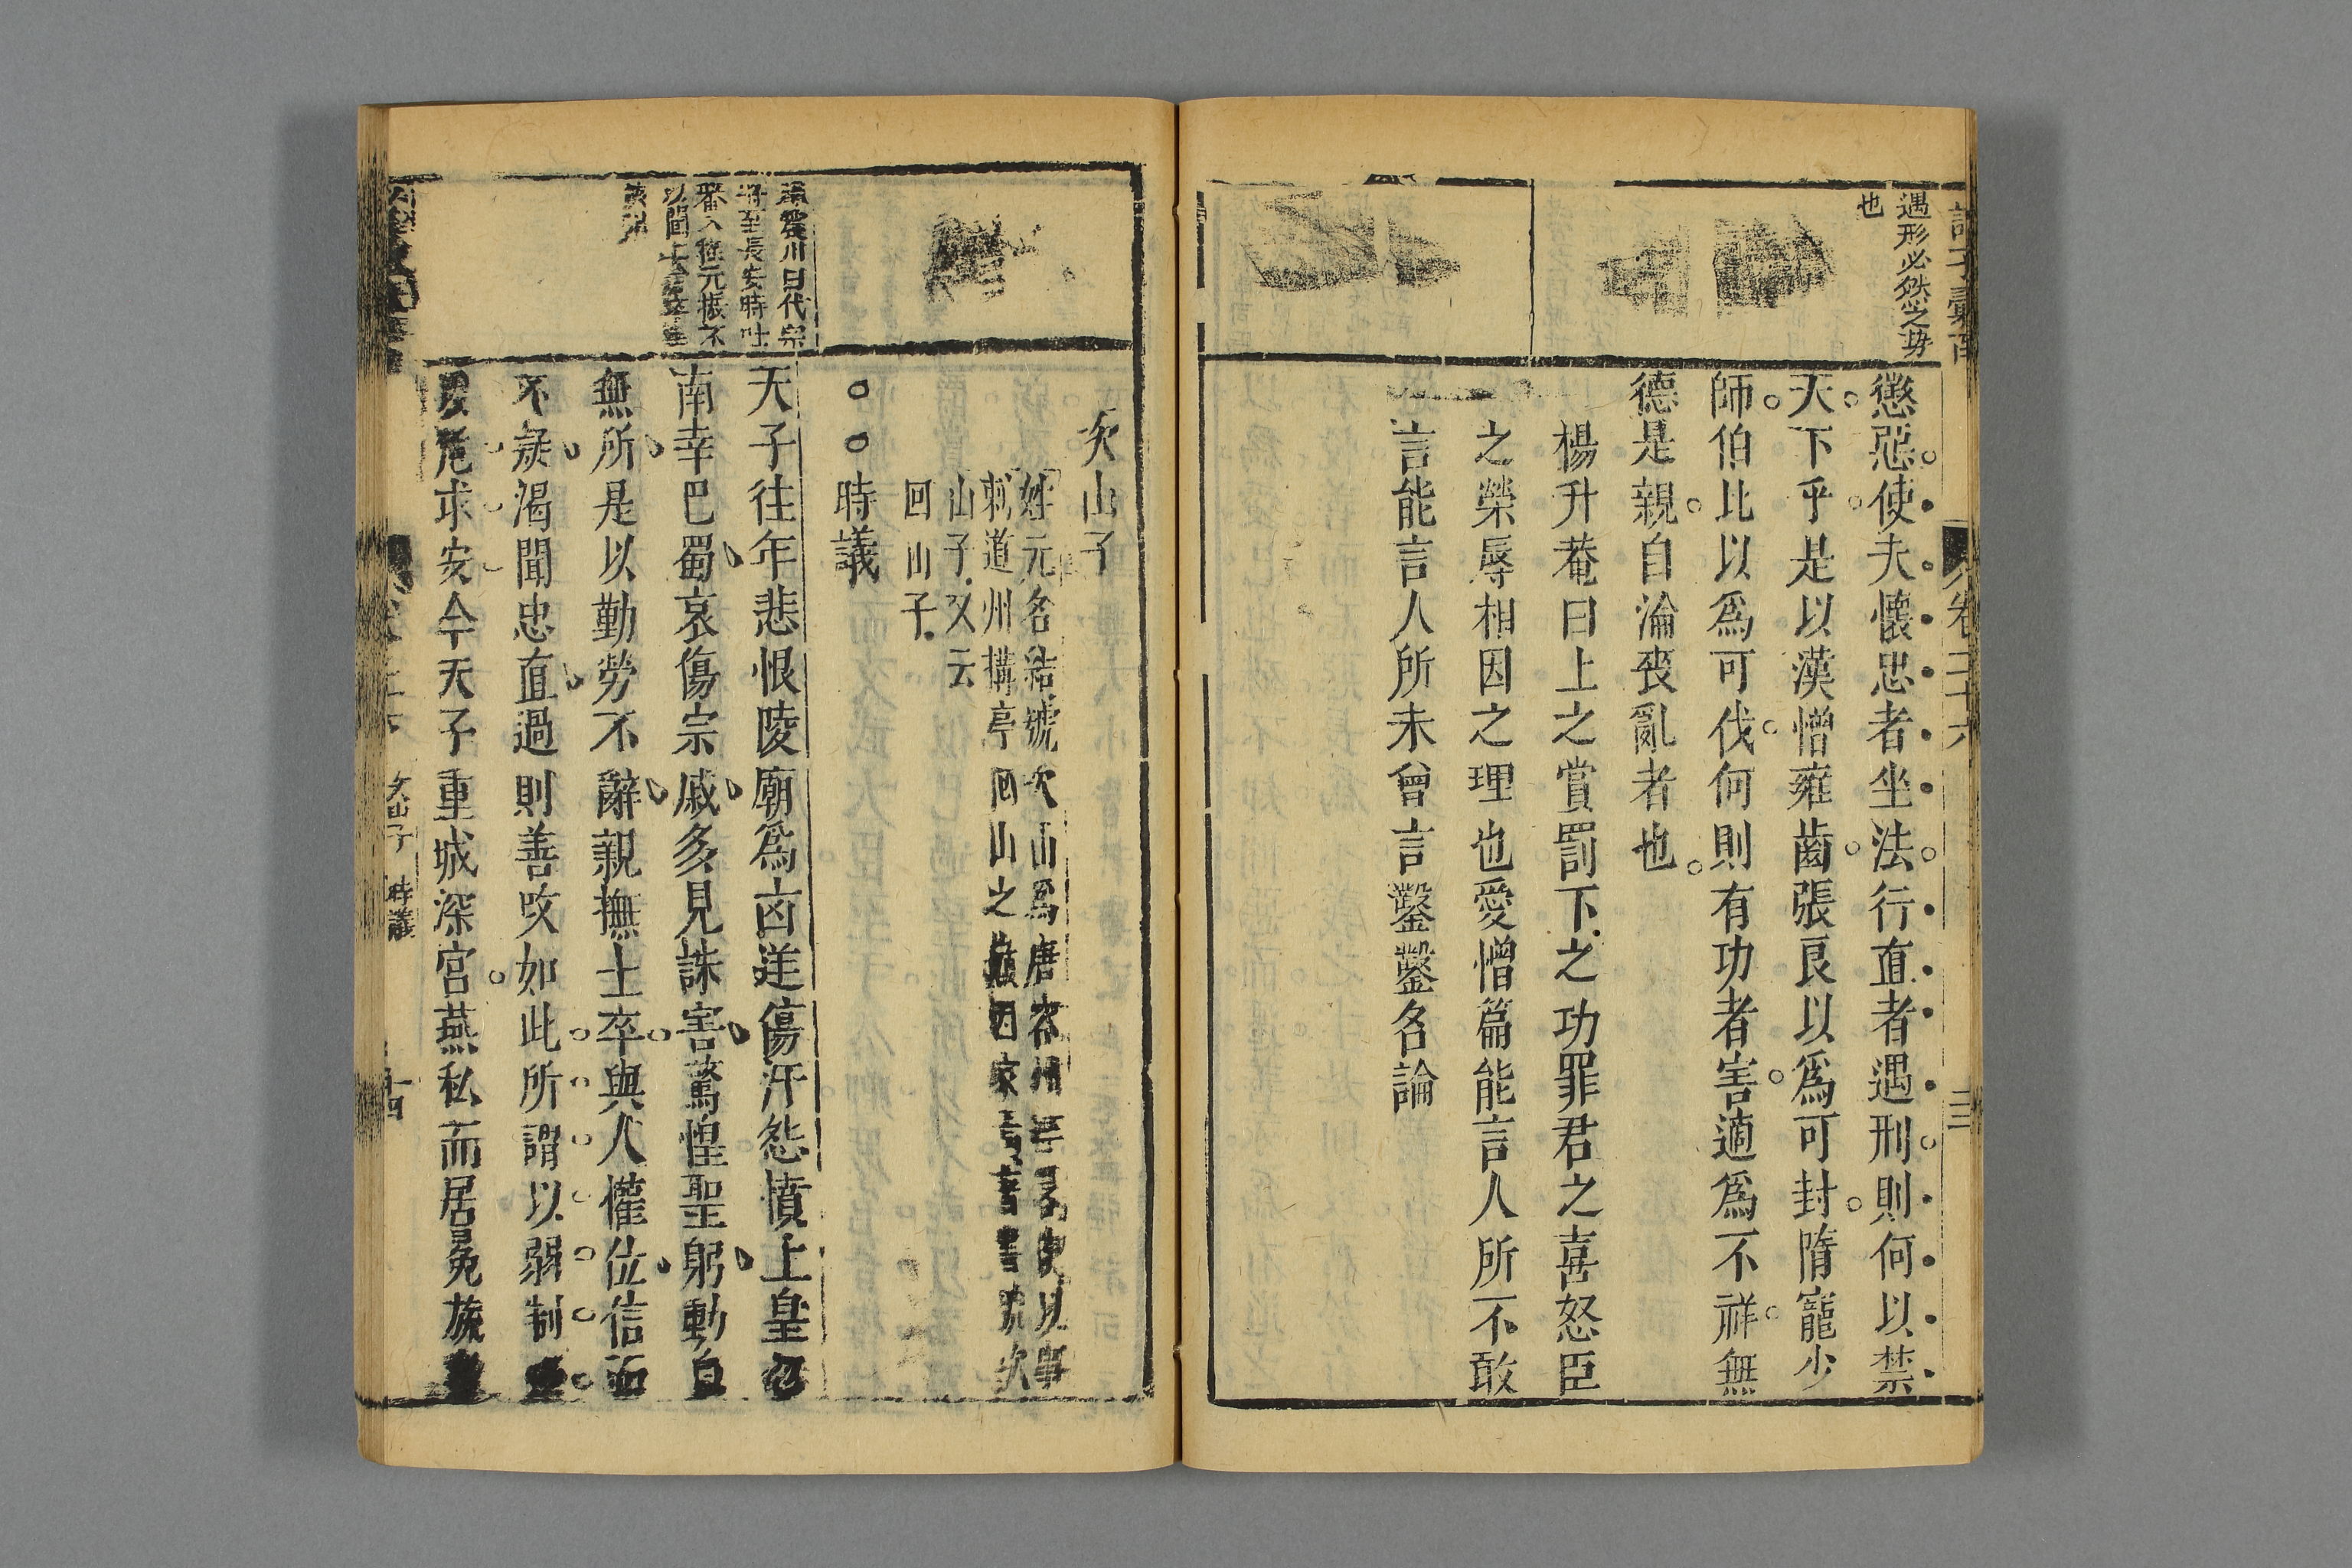 諸子彙函
卷二十六
遇形必然之勢
也
懲惡使夫懷忠者坐法行直者遇刑則何以禁
天下乎是以漢憎雍齒張良以爲可封隋寵少
師伯比以爲可伐何則有功者害適爲不祥無
德是親自淪喪亂者也
楊升菴曰上之賞罰下之功罪君之喜怒臣
之榮辱相因之理也愛憎篇能言人所不敢
言能言人所未曾言鑿鑿名論
次山子
姓元名結號次山爲唐容州
刺道州搆亭回山之因家著書號次
山子又云
回山子
時議
震川曰代宗
時至長安時吐
蕃入程元振不
以聞
天子往年悲恨陵廟爲凶逆傷汙怨憤上皇
南幸巴蜀哀傷宗戚多見誅害驚惶聖躬動自
無所是以勤勞不辭親撫士卒與人權位信而
不疑渴聞忠直過則善攺如此所謂以弱制
危求安今天子重城深宮燕私而居冕旒
次山子 時議
十四